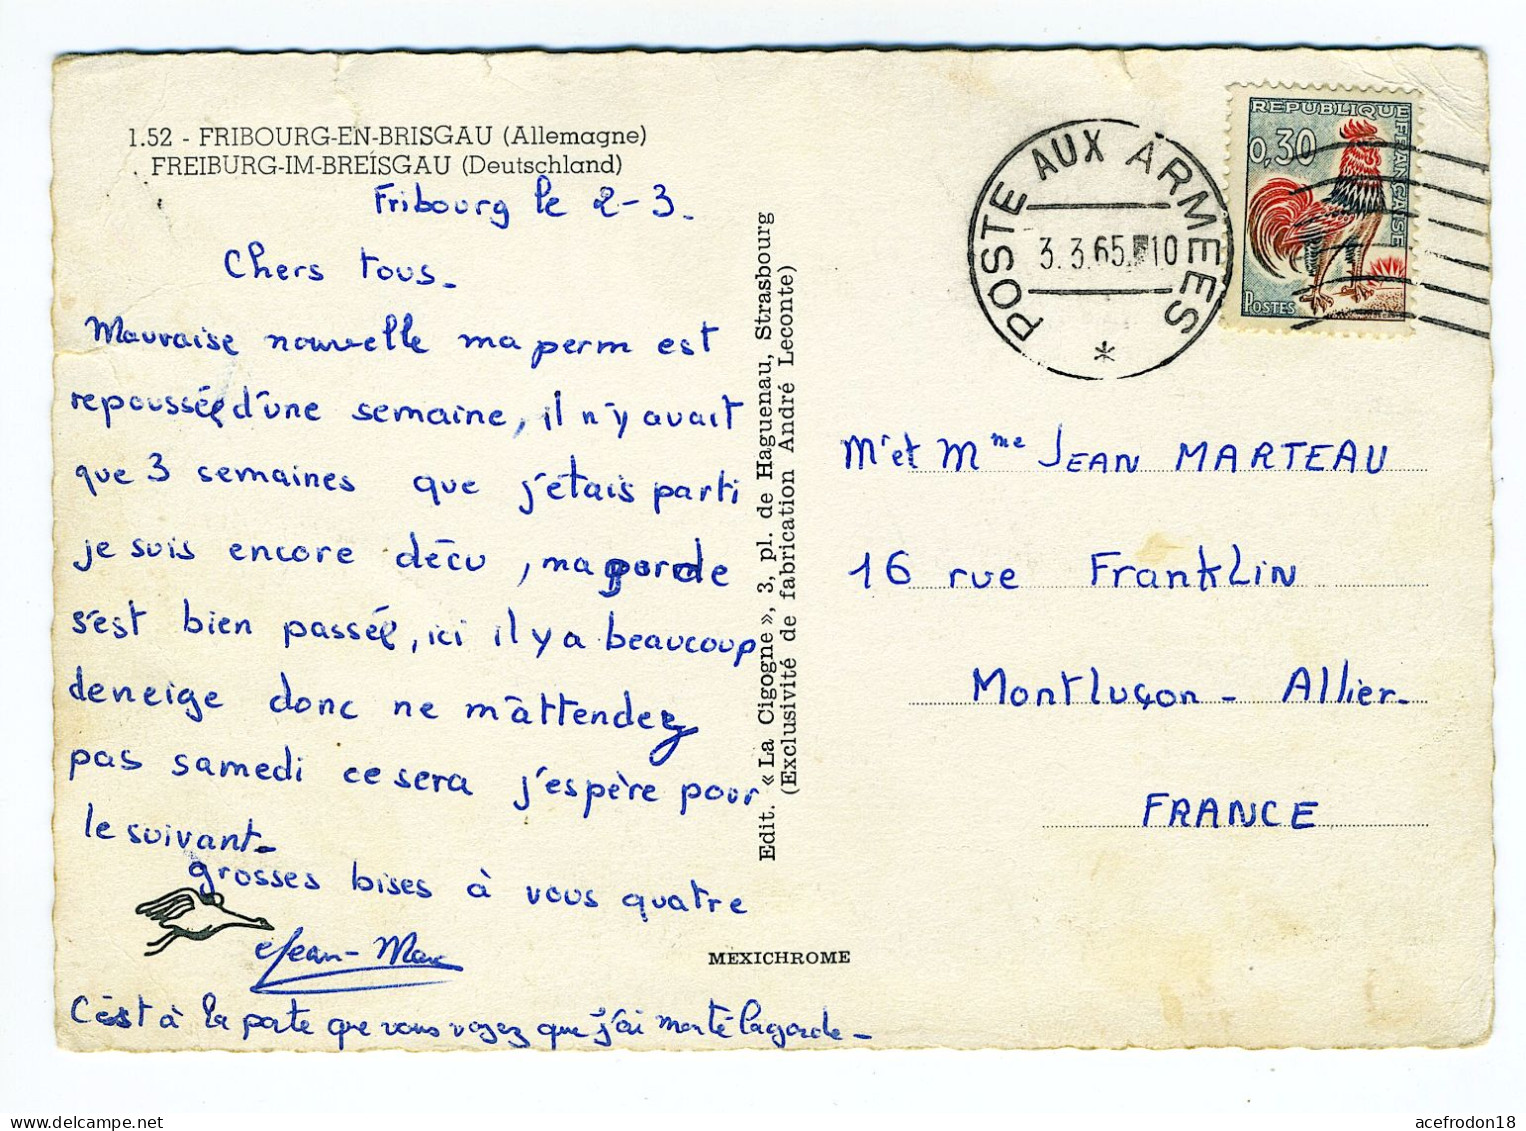 1.52 - FRIBOURG-EN-BRISGAU (Allemagne)
FREIBURG-IM-BREISGAU (Deutschland)
Fribourg le 2-3.
Chers tous.
Mauvaise nouvelle ma perm est
repoussée d'une semaine, il n'y avait
que 3 semaines que j'étais parti
je suis encore déçu, ma garde
s'est bien passée, ici il y a beaucoup
de neige donc ne m'attendez
pas samedi ce sera j'espère pour
le suivant.
grosses bises à vous quatre
Jean-Marc
C'est à la porte que vous voyez que j'ai monté la garde.
Edit. « La Cigogne », 3, pl. de Haguenau, Strasbourg
(Exclusivité de fabrication André Leconte)
MEXICHROME
POSTE AUX ARMEES
3.3.65. 10
*
REPUBLIQUE FRANÇAISE
0,30
POSTES
Mr et Mme JEAN MARTEAU
16 rue FrankLin
Montluçon - Allier-
FRANCE
acefrodon18